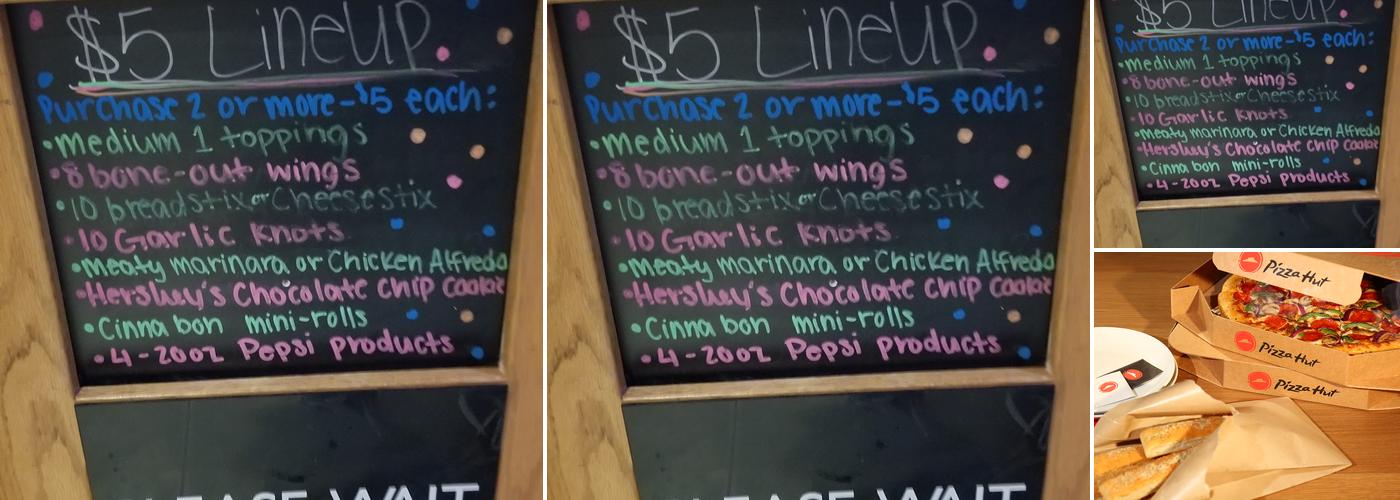 $5 Lineup
Purchase 2 or more-$5 each:
•medium 1 toppings
•8 bone-out wings
•10 breadstix or Cheesestix
•10 Garlic Knots
•Meaty marinara or Chicken Alfredo
•Hershey's Chocolate chip cookie
•Cinnabon mini-rolls
•4-20oz Pepsi products
PLEASE WAIT
$5 Lineup
Purchase 2 or more-$5 each:
•medium 1 toppings
•8 bone-out wings
•10 breadstix or Cheesestix
•10 Garlic Knots
•Meaty marinara or Chicken Alfredo
•Hershey's Chocolate chip cookie
•Cinnabon mini-rolls
•4-20oz Pepsi products
PLEASE WAIT
$5 Lineup
Purchase 2 or more-$5 each:
•medium 1 toppings
•8 bone-out wings
•10 breadstix or Cheesestix
•10 Garlic Knots
•Meaty marinara or Chicken Alfredo
•Hershey's Chocolate chip cookie
•Cinnabon mini-rolls
•4-20oz Pepsi products
Pizza Hut
Pizza Hut
Pizza Hut